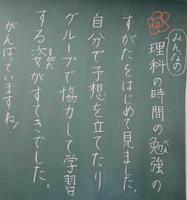 みんなの
理科の時間の勉強の
すがたをはじめて見ました。
自分で予想を立てたり
グループで協力して学習
する姿がすてきでした。
すがた
がんばっていますね!